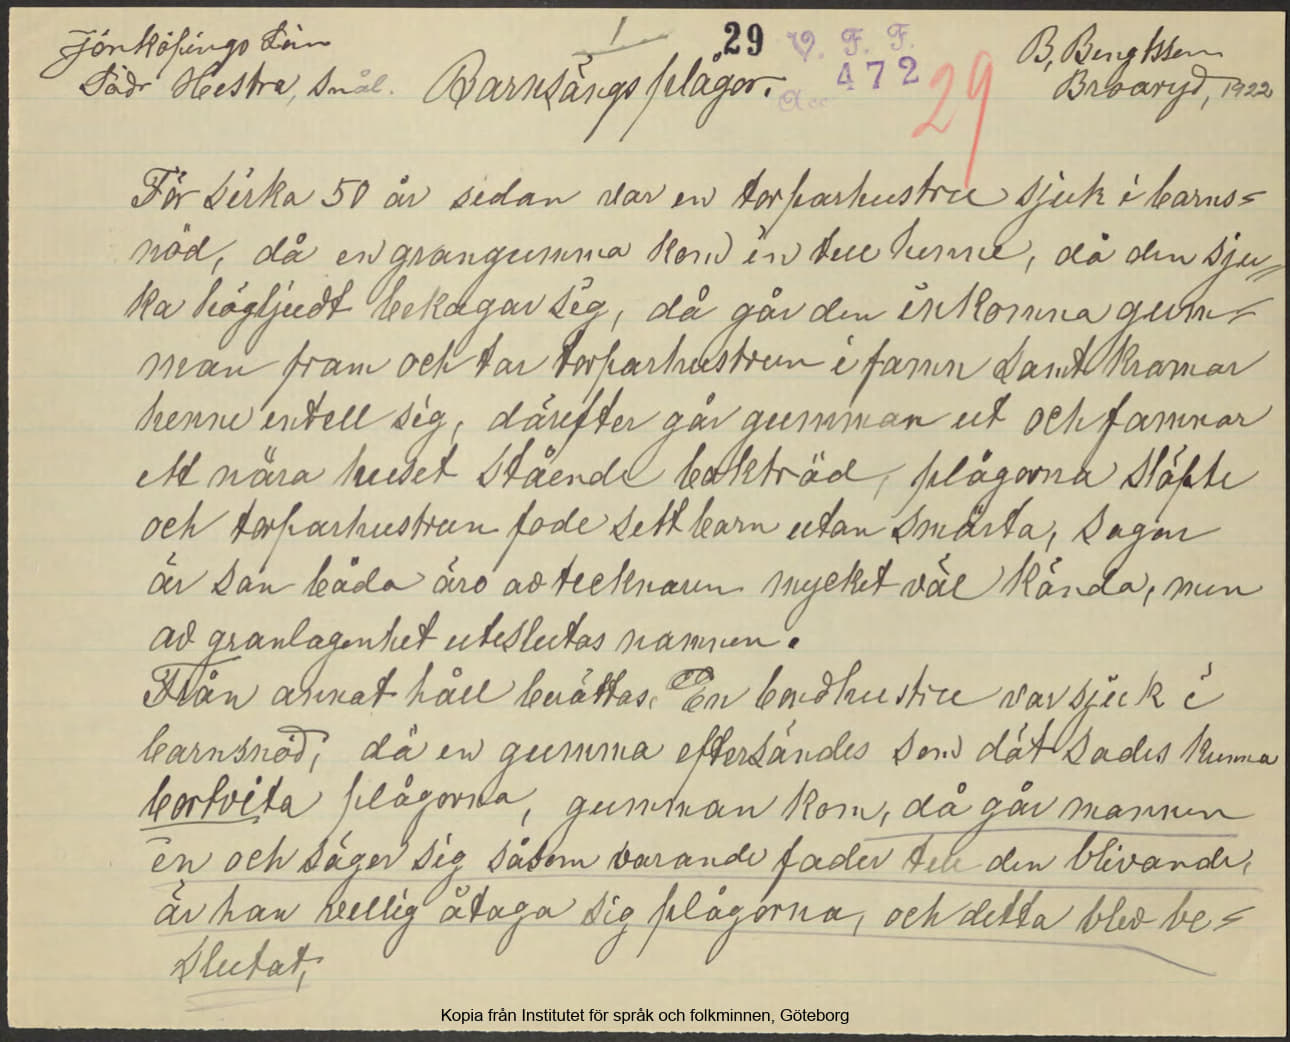 Jönköpings Län
Södr Hestra, Smål.
1
Barnsängsplågor.
29
V. F. F.
Acc 472
29
B. Bengtsson
Broaryd, 1922
För sirka 50 år sedan var en torparhustru sjuk i barns=
nöd, då en grangumma kom in till henne, då den sju=
ka högljudt beklagar sig, då går den inkomna gum=
man fram och tar torparhustrun i famn samt kramar
henne intill sig, därefter går gumman ut och famnar
ett nära huset stående bokträd, plågorna släpte
och torparhustrun föde sett barn utan smärta, sagan
är san båda äro av tecknaren mycket väl kända, men
av granlagenhet uteslutas namnen.
Från annat håll berättas. En bondhustru var sjuk i
barnsnöd, då en gumma eftersändes som dät sades kunna
bortvita plågorna, gumman kom, då går mannen
in och säger sig såsom varande fader till den blivande,
är han villig åtaga sig plågorna, och detta blev be=
slutat,
Kopia från Institutet för språk och folkminnen, Göteborg